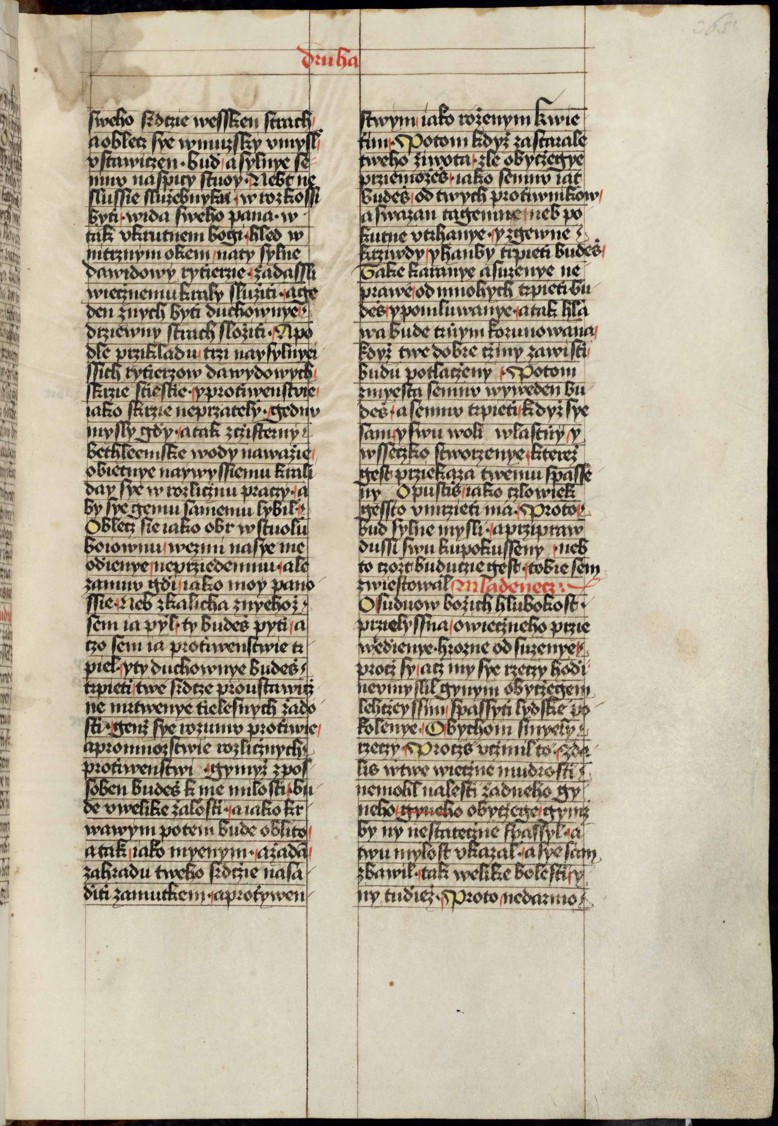 druha
sweho srdcie wessken strach
a oblecz sye w muzsky vmysl
vstawiczen · bud / a sylnye se
mnu na spicy stuoy · Nebt ne
slussie sluzebnyku / w rozkossi
byti · wida sweho pana · w
tak vkrutnem bogi · hled w
nitrznym okem / na ty sylne
dawidowy rytierzie · zadassli
wiecznemu krali sluziti · a ge
den z nych byti duchownye /
drziewny strach sloziti · A po
dle przikladu / trzi naysylnyei
ssich rytierzow dawydowych
skrzie stiestie · y protiwenstwie
iako skrzie neprzately · gednu
mysly gdy · a tak z czisterny
Bethleemske wody nawazie
obietuye naywyssiemu krali
day sye w rozlicznu praczy · a
by sye gemu samemu lybil ·
Oblecz sie iako obr w stuolu
boiownu / wezmi na sye ine
odienye / neprziedemnu · ale
za mnu gdi / iako moy pano
ssie · Neb z kalicha z nyehoz
sem ia pyl · ty budes pyti / a
czo sem ia protiwenstwie tr
piel · y ty duchownye budes
trpieti / twe srdcze proustawicz
ne mrtwenye tielesnych zado
sti · genz sye rozumu protiwie
a pro mnozstwie rozlicznych
protiwenstwi · gymyz zpos
soben budes k me milosti · bu
de v welike zalosti · a iako kr
wawym potem bude oblito
a tak / iako myenym · a zada
zahradu tweho srdczie nasa
diti zamutkem · a protywen
stwym / iako rozenym kwie
tim · Potom kdyz zastarale
tweho ziwota · zle obyczegye
prziemozes · iako semnu iat
budes / od twych protiwnikow
a swazan tagemnie / neb po
kutne vtrhanye · y zgewne
krziwdy / y hanby trpieti budes
Take karanye a suzenye ne
prawe / od mnohych trpieti bu
des / y pomluwanye · a tak hla
wa bude trnym korunowana
kdyz twe dobre cziny zawisti
budu potlaczeny / Potom
z myesta semnu wyweden bu
des · a semnu trpieti / kdyz sye
sam / y swu woli wlastny / y
wsseczko stworzenye · kterez
gest przieKaza twemu spasse
ny Opustis / iako czlowiek
gessto vmrzieti ma · Proto
bud sylne mysli · a przipraw
dussi swu ku pokussenij / neb
to czozt buducie gest · tobie sem
zwiestowal Mladenecz :
O suduow bozich hlubokost ·
przielyssna / o wieczneho przie
wedienye / hrozne od suzenye
procz sy / a cz my sye rzeczy hodi
nevinyslil gynym obyczegem
lehczeyssim / spassyti lydske po
kolenye · Obychom sinyely
rzeczy · Proczs vczinil to · zda
lis w twe wieczne mudrosti
nemohl nalesti zadneho gy
neho gyneho obyczege / gymz
by ny nestateczne spassyl · a
twu mylost vkazal · a sye sam
zbawil · tak welike bolesti / y
ny tudiez · Proto nedarmo